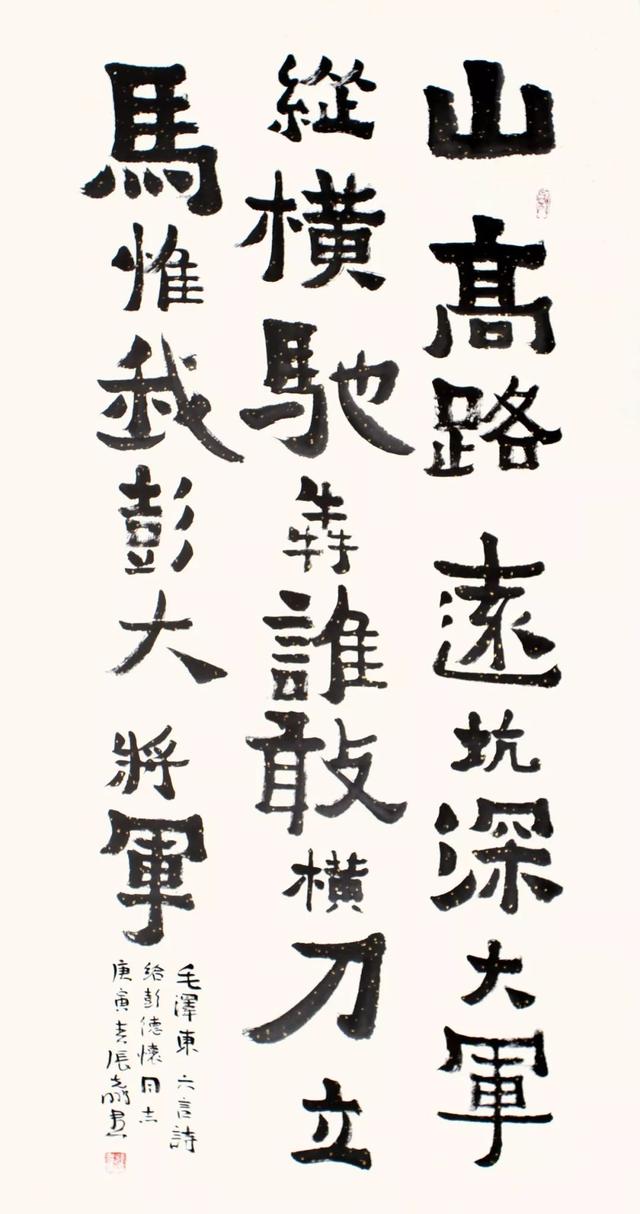 山高路遠坑深大軍
縱橫馳犇誰敢橫刀立
馬惟我彭大將軍
毛澤東六言詩
給彭德懷同志
庚寅春張